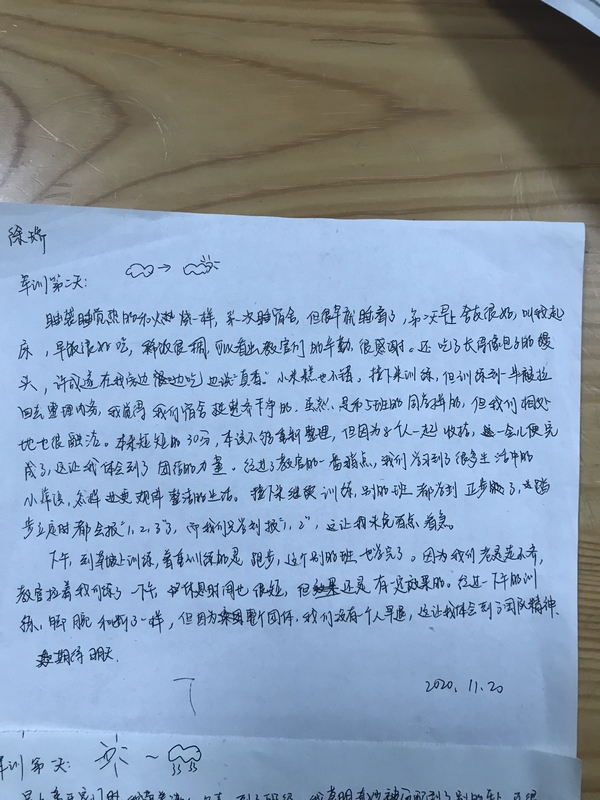 徐娇
军训第二天:
睡袋睡得热的和火炉烧一样,第一次睡宿舍,但很早就睡着了,第二天早上舍友很好,叫我起
床,早饭很好吃,种类很棒,可以看出教官们的辛勤,很感谢。还吃了长得像包子的馒
头,许成远在我旁边边吃边说"真香"。小米糕也不错。接下来训练,但训练到一半被拉
回去整理内务,我觉得我们宿舍挺整齐干净的,虽然是和5班的同学拼的,但我们相处
地也很融洽。本来短短的30分,本该不够重新整理,但因为8个人一起收拾,一会儿便完
成了,这让我体会到了团结的力量。经过了教官的一番指点,我们学习到了很多生活中的
小常识,怎样过更规律整洁的生活。接下来继续训练,别的班都学到正步的了,踏
步立定时都会报"1,2,3"了,而我们只学到报"1,2",这让我未免有点着急。
下午,到草坡上训练,着重训练的是跑步,这个别的班也学完了。因为我们老是走不齐,
教官拉着我们练了一下午,休息时间也很短,但还是有一定效果的。经过一下午的训
练,脚腕和断了一样,但因为整个团体,我们没有一个人早退,这让我体会到了团队精神。
期待明天。
2020.11.20
军训第一天: